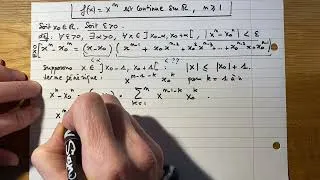 f(x) = x^n est continue sur ℝ, n ≥ 1
Soit x₀ ∈ ℝ. Soit ε > 0
déf. ∀ε > 0, ∃α > 0, ∀x ∈ ]x₀ - α, x₀ + α[, |x^n - x₀^n| < ε
x^n - x₀^n = (x - x₀)(x^{n-1} + x₀ x^{n-2} + x₀² x^{n-3}
< α < ??
Supposons x ∈ ]x₀ - 1, x₀ + 1[ |x| ≤ |x₀| + 1.
terme générique : x^{n-1-k} x₀^k pour k = 1 à
x^n - x₀^n Σ x^{n-1-k} x₀^k
x^n